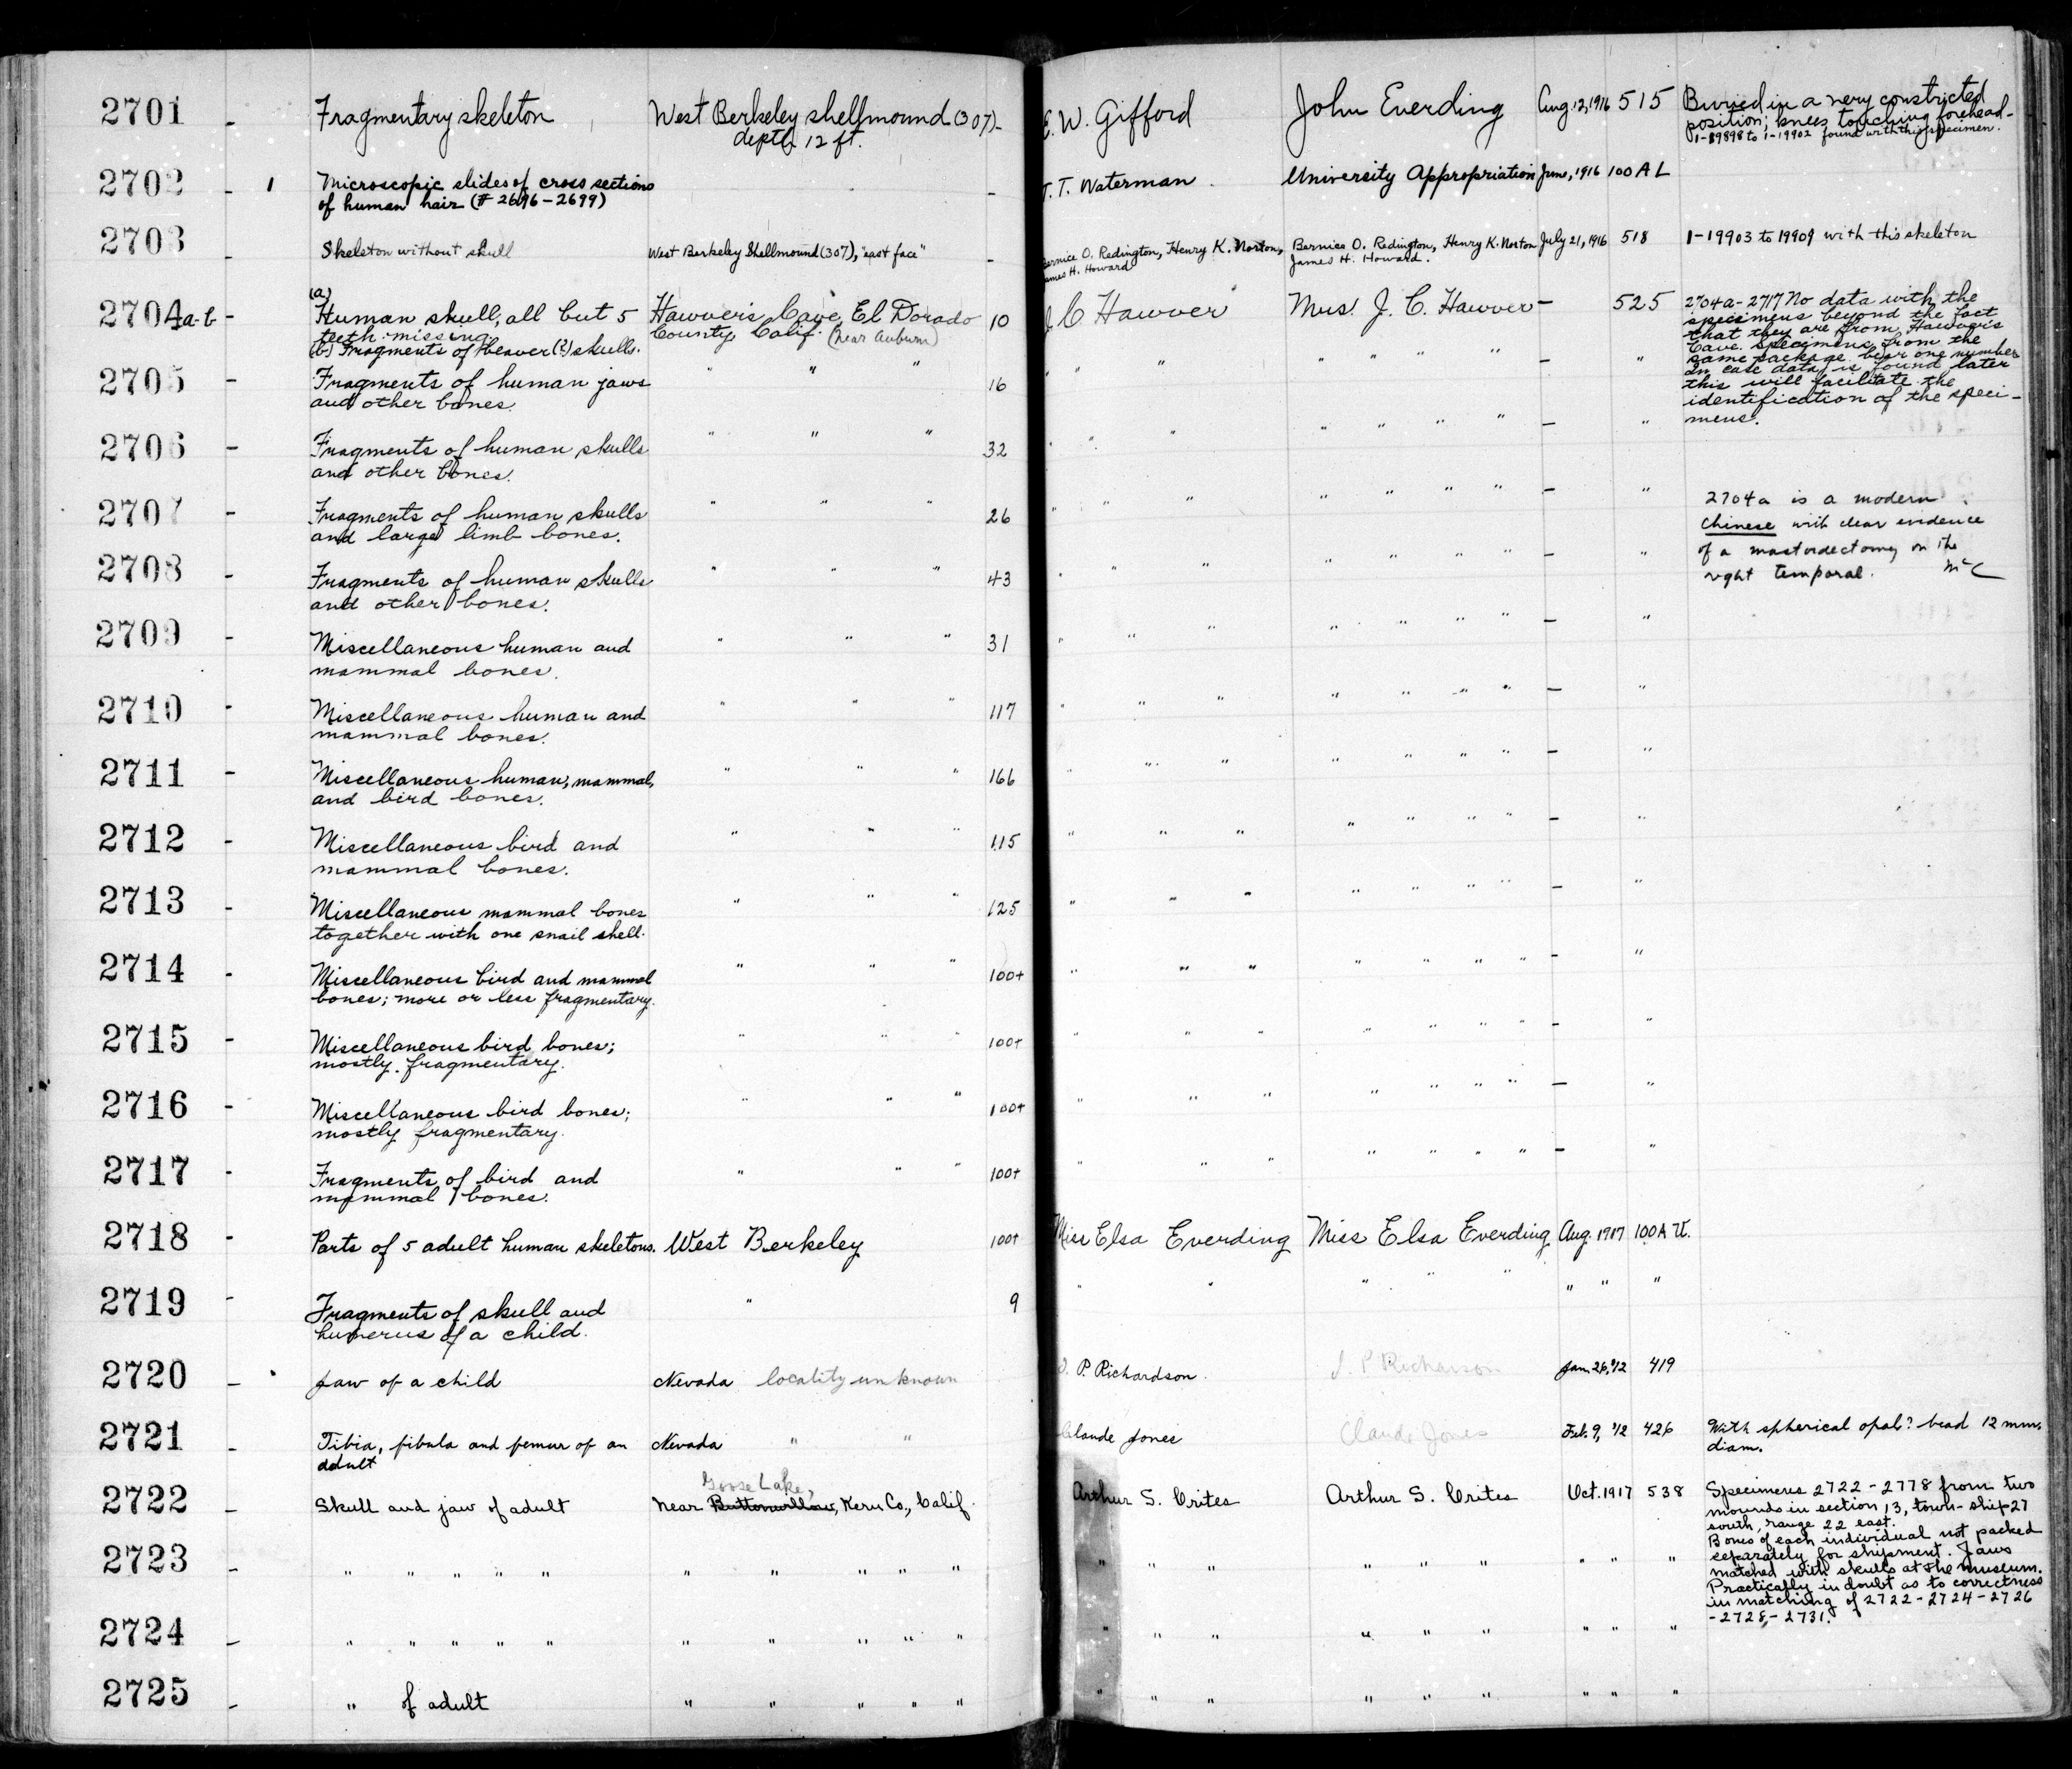 2701 - Fragmentary skeleton West Berkeley shellmound (307)- E. W. Gifford John Everding Aug. 12, 1916 515 Buried in a very constricted
depth 12 ft. position; knees touching forehead-
1-19898 to 1-19902 found with this specimen.
2702 - 1 Microscopic slides of cross sections - T. T. Waterman University Appropriation June, 1916 100 A L
of human hair (# 2696-2699)
2703 - Skeleton without skull West Berkeley Shellmound (307), "east face" - Bernice O. Redington, Henry K. Norton, Bernice O. Redington, Henry K. Norton July 21, 1916 518 1-19903 to 19909 with this skeleton
James H. Howard James H. Howard.
2704a-b - (a) Human skull, all but 5 Hawver's Cave, El Dorado 10 J C Hawver Mrs. J. C. Hawver - 525 2704a-2717 No data with the
teeth missing. County, Calif. (near Auburn) specimens beyond the fact
(b) Fragments of beaver (?) skulls. that they are from Hawver's
Cave. Specimens from the
same package bear one number
2705 - Fragments of human jaws " " " 16 " " " " " " - " In case data is found later
and other bones. this will facilitate the
identification of the speci-
mens.
2706 - Fragments of human skulls " " " 32 " " " " " " " - "
and other bones.
2707 - Fragments of human skulls " " " 26 " " " " " " " - " 2704a is a modern
and large limb bones. Chinese with clear evidence
of a mastoidectomy on the
2708 - Fragments of human skulls " " " 43 " " " " " " " - " right temporal. McC
and other bones.
2709 - Miscellaneous human and " " " 31 " " " " " " " - "
mammal bones.
2710 - Miscellaneous human and " " " 117 " " " " " " " - "
mammal bones.
2711 - Miscellaneous human, mammal, " " " 166 " " " " " " " - "
and bird bones.
2712 - Miscellaneous bird and " " " 115 " " " " " " " - "
mammal bones.
2713 - Miscellaneous mammal bones " " " 125 " " " " " " " - "
together with one snail shell.
2714 - Miscellaneous bird and mammal " " " 100+ " " " " " " " - "
bones; more or less fragmentary.
2715 - Miscellaneous bird bones; " " " 100+ " " " " " " " - "
mostly fragmentary.
2716 - Miscellaneous bird bones; " " " 100+ " " " " " " " - "
mostly fragmentary.
2717 - Fragments of bird and " " " 100+ " " " " " " " - "
mammal bones.
2718 - Parts of 5 adult human skeletons. West Berkeley 100+ Miss Elsa Everding Miss Elsa Everding Aug. 1917 100 A U.
2719 - Fragments of skull and " 9 " " " " " " " "
humerus of a child.
2720 - Jaw of a child Nevada locality unknown P. Richardson Jan. 26, '12 419
2721 - Tibia, fibula and femur of an Nevada " " Claude Jones Claude Jones Feb. 9, '12 426 With spherical opal? bead 12 mm.
adult diam.
Goose Lake,
2722 - Skull and jaw of adult near Buttonwillow, Kern Co., Calif. Arthur S. Crites Arthur S. Crites Oct. 1917 538 Specimens 2722-2778 from two
mounds in section 13, town-ship 27
south, range 22 east.
Bones of each individual not packed
2723 - " " " " " " " " " " " " " " " " " " " separately for shipment. Jaws
matched with skulls at the museum.
Practically in doubt as to correctness
in matching of 2722-2724-2726
-2728-2731.
2724 - " " " " " " " " " " " " " " " " " " "
2725 - " of adult " " " " " " " " " " " " " "